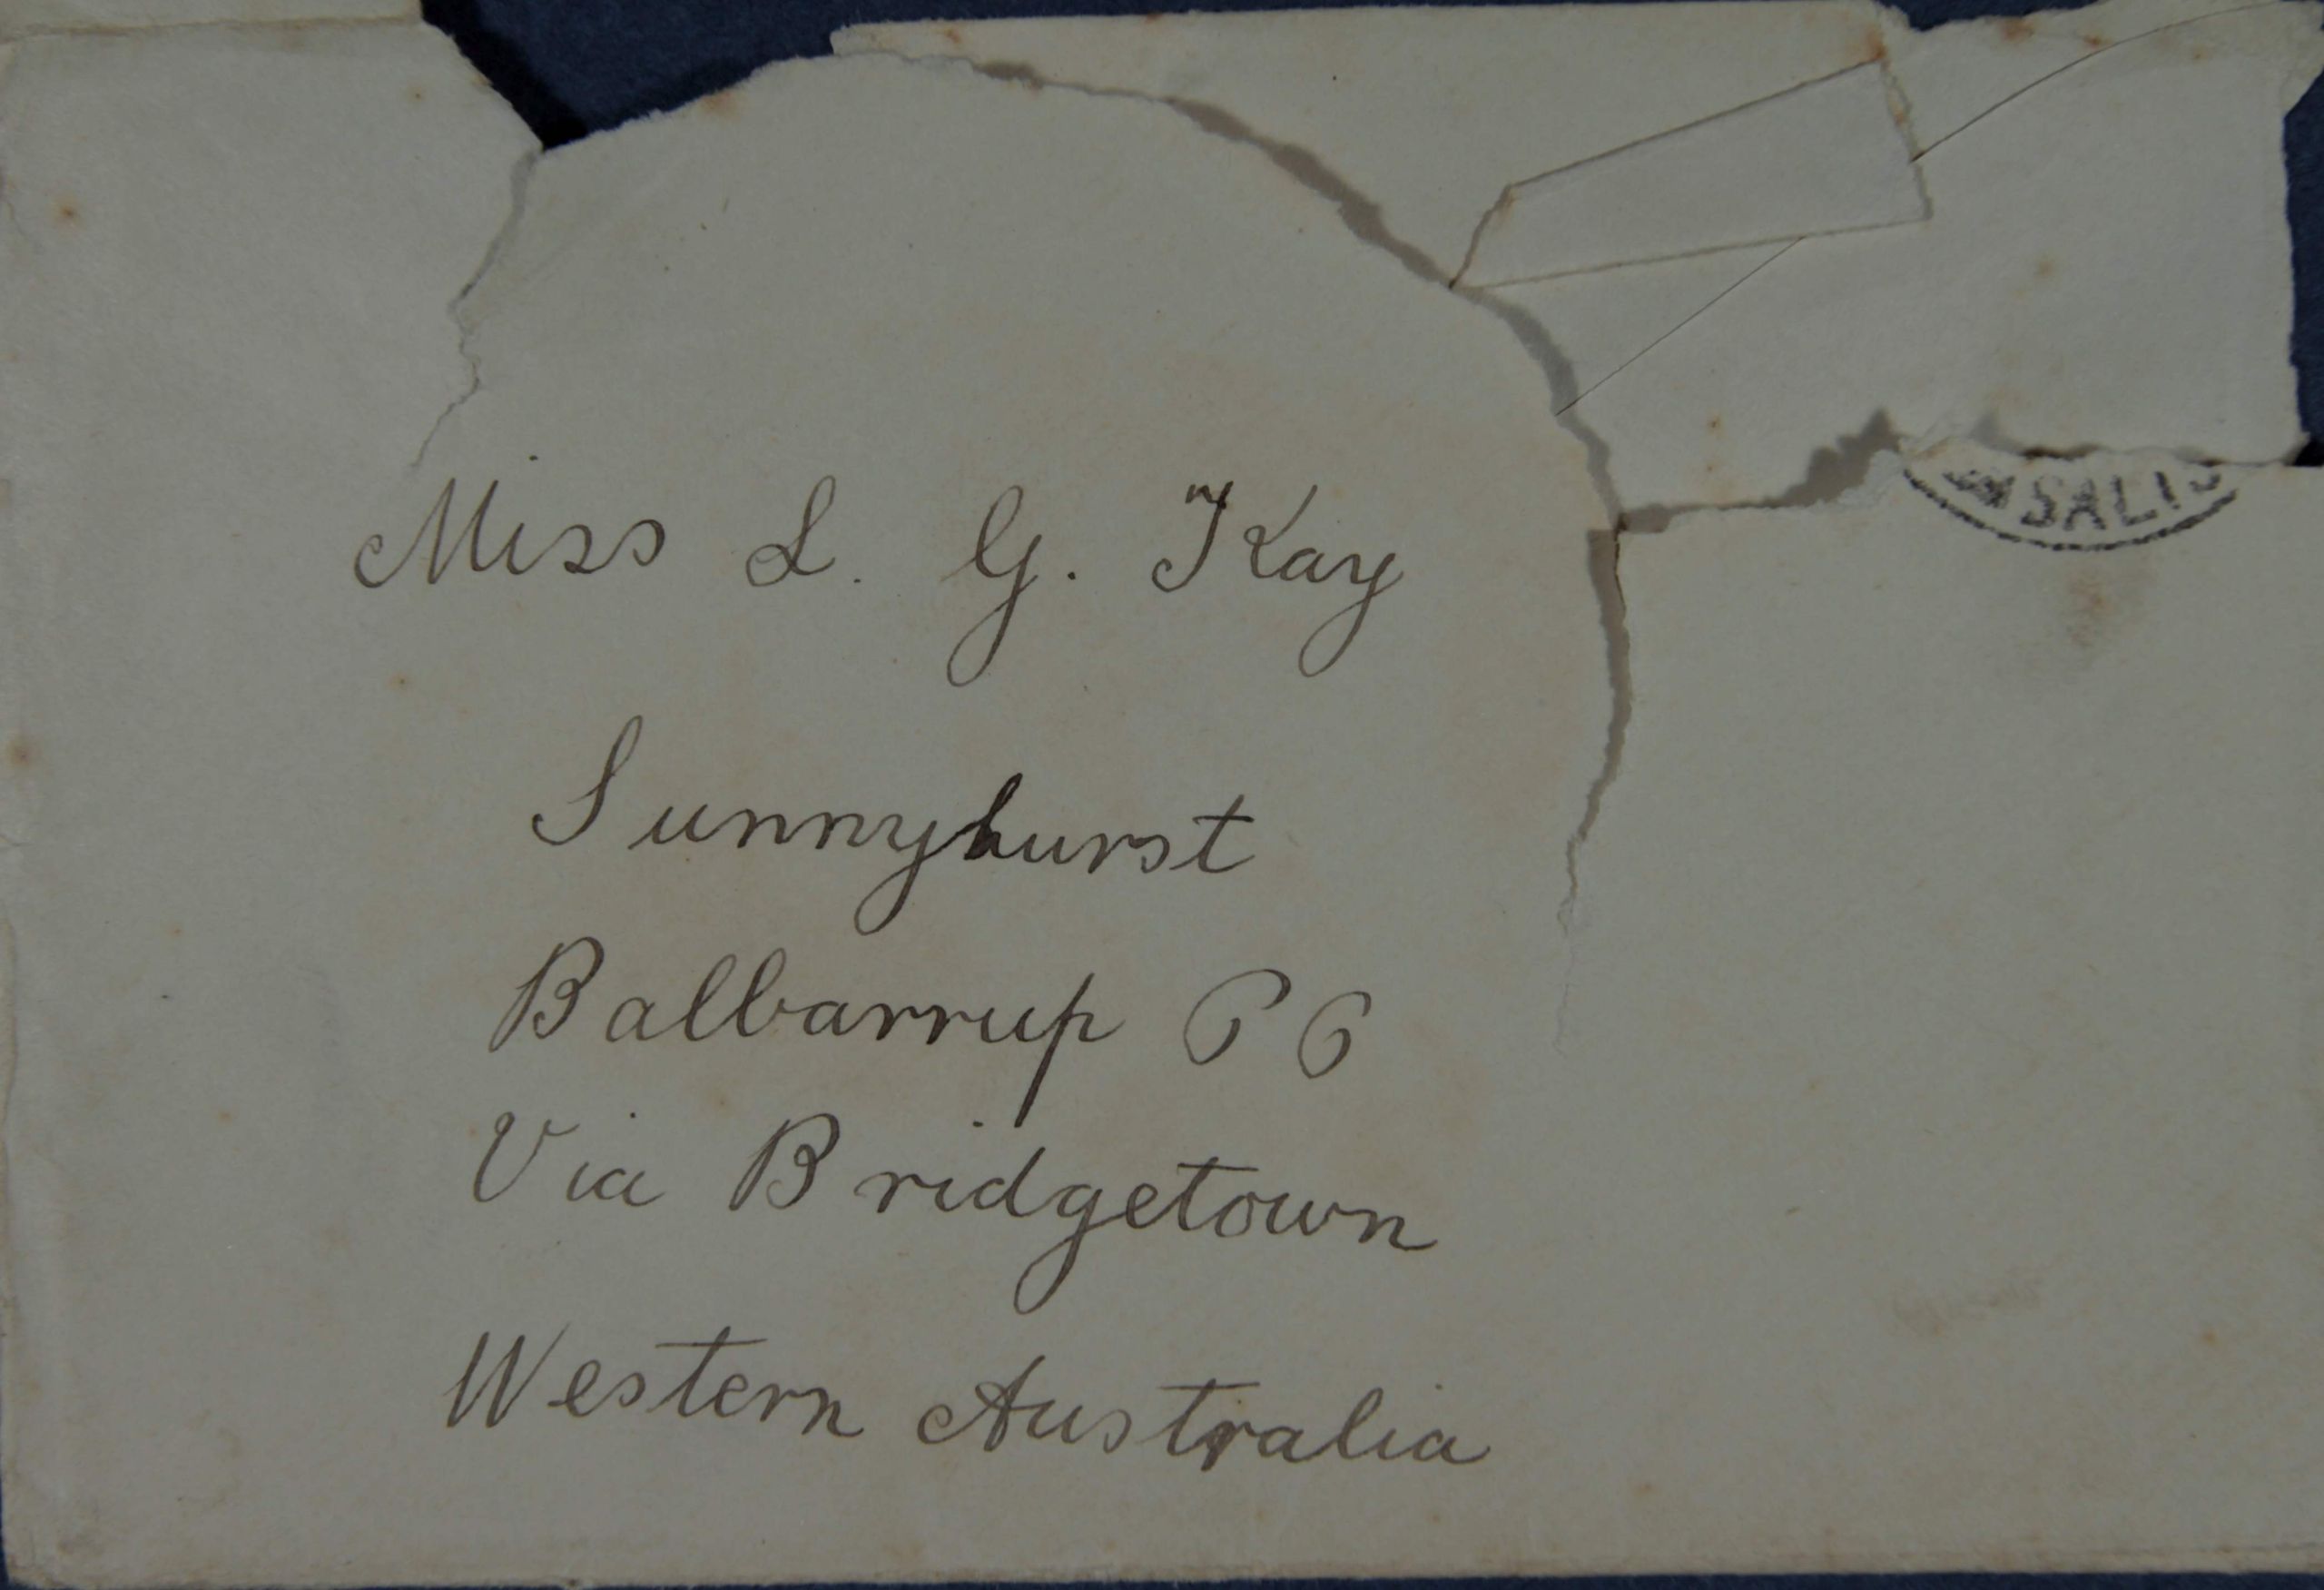 SALIS
Miss L. G. Kay
Sunnyhurst
Balbarrup PO
Via Bridgetown
Western Australia